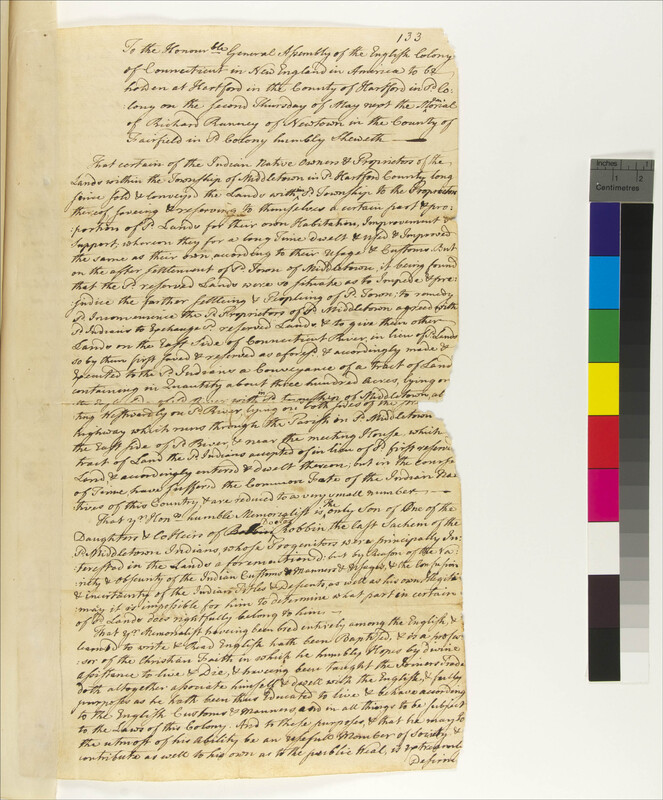 133
To the Honour.ble General Assembly of the English Colony
of Connecticut in New England in America to be
holden at Hartford in the County of Hartford in sd Co-
lony on the second Thursday of May next the Memorial
of Richard Ranney of Newtown in the County of
Fairfield in sd Colony humbly Sheweth
That certain of the Indian Native Owners & Proprietors of the
Lands within the Township of Middletown in sd Hartford County long
since sold & conveyed the Lands within sd Township to the Proprietors
thereof saveing & reserveing to themselves a certain part & pro-
portion of sd Lands for their own Habitation, Improvement &
Support, whereon they for a long Time dwelt & Used & Improved
the same as their own according to their Usage & Customs. But
on the after settlement of sd Town of Middletown, it being found
that the sd reserved Lands were so situate as to Impede & pre-
judice the farther settling & Peopling of sd Town; to remedy
sd Inconvenience the sd Proprietors of sd Middletown agreed with
sd Indians to Exchange sd reserved Lands & to give them other
Lands on the East Side of Connecticut River, in lieu of sd Lands
so by them first saved & reserved as aforesd & accordingly made &
Executed to the sd Indians a Conveyance of a tract of Land
containing in Quantity about three hundred Acres, lying on
the East Side of sd River within sd township of Middletown, abut
ting Westwardly on sd River, lying on both sides of the
highway which runs through the Parish in sd Middletown
the East side of sd River, & near the meeting House which
tract of Land the sd Indians accepted of in lieu of sd first reserved
Land, & accordingly entered & dwelt thereon; but in the course
of Time have suffered the Common Fate of the Indian Na-
tives of this Country, & are reduced to a very small number.
That yr Honrs humble Memorialist is the only Son of One of the
Daughters & CoHeirs of Doctor Robbin the last Sachem of the
sd Middletown Indians, whose Progenitors were principally In-
terested in the Lands aforementioned; but by Reason of the Va-
riety & Obscurity of the Indian Customs & Manners & Usages, & the Confusion
& incertainty of the Indian Titles & Descents, as well as his own Illegiti-
macy it is impossible for him to determine what part in certain
of sd Lands does rightfully belong to him
That yr Memorialist haveing been bred entirely among the English, &
learned to write & Read English hath been Baptised, & is a profes-
sor of the Christian Faith in which he humbly Hopes by divine
assistance to live & Die, & haveing been taught the Joiners Trade
doth altogether associate himself & dwell with the English, & fully
purposes as he hath been thus Educated to live & behave according
to the English Customs & Manners and in all things to be subject
to the Laws of this Colony. And to these purposes, & that he may to
the utmost of his Ability be an usefull Member of Society &
contribute as well to his own as to the publick Weal, is extreamly
Desirous
Inches
1
2
Centimetres